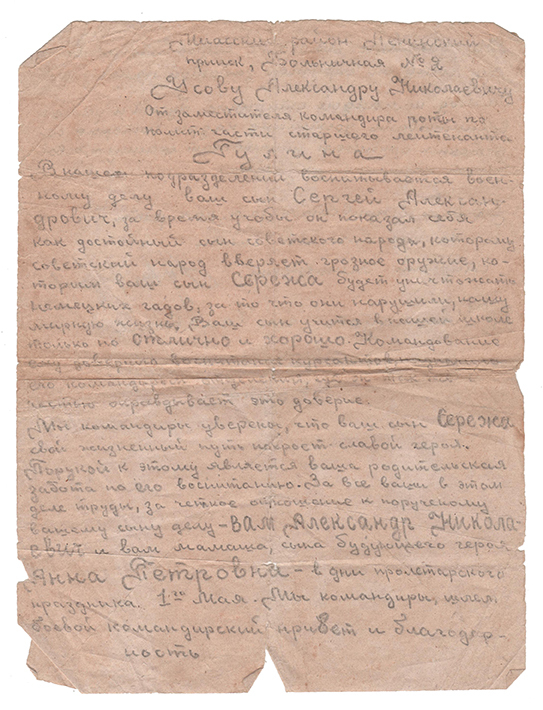 Миасский район Ленинский
прииск, Больничная № 2
Усову Александру Николаевичу
От заместителя командира роты по
части старшего лейтенанта
Гулина
В нашем подразделении воспитывается воен-
ному делу ваш сын Сергей Алексан-
дрович, за время учебы он показал себя
как достойный сын советского народа, которому
советский народ вверяет грозное оружие, ко-
торым ваш сын Сережа будет уничтожать
немецких гадов, за то что они нарушили, нашу
мирную жизнь. Ваш сын учится в нашей школе
только по отлично и хорошо. Командование
ему доверило
его командиром
честью оправдывает это доверие.
Мы командиры уверены, что ваш сын Сережа
свой жизненный путь славой героя.
Порукой к этому является ваша родительская
забота по его воспитанию. За все ваши в этом
деле труды, за честное отношение к порученому
вашему сыну делу – вам Александр Никола-
евич и вам мамаша, сына будующего героя
Анна Петровна – в дни пролетарского
праздника. 1го Мая. Мы командиры, шлем
боевой командирский привет и благодар-
ность